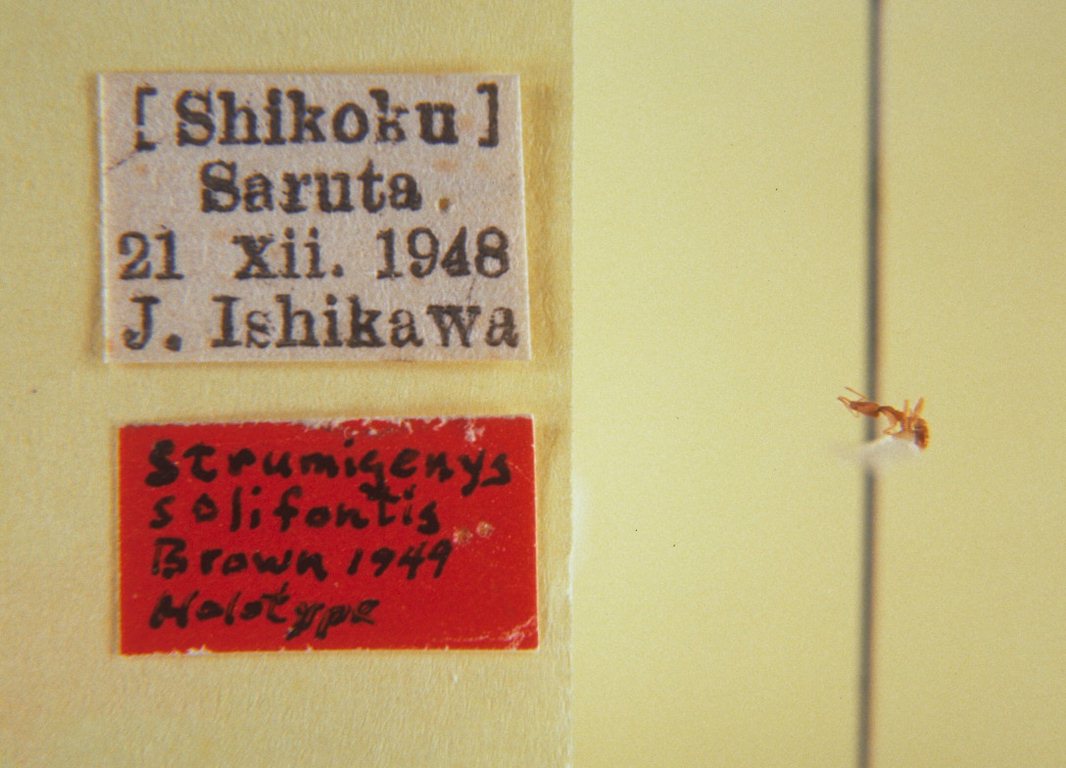 [Shikoku]
Saruta.
21 Xii. 1948
J. Ishikawa
Strumigenys
solifontis
Brown 1949
Holotype